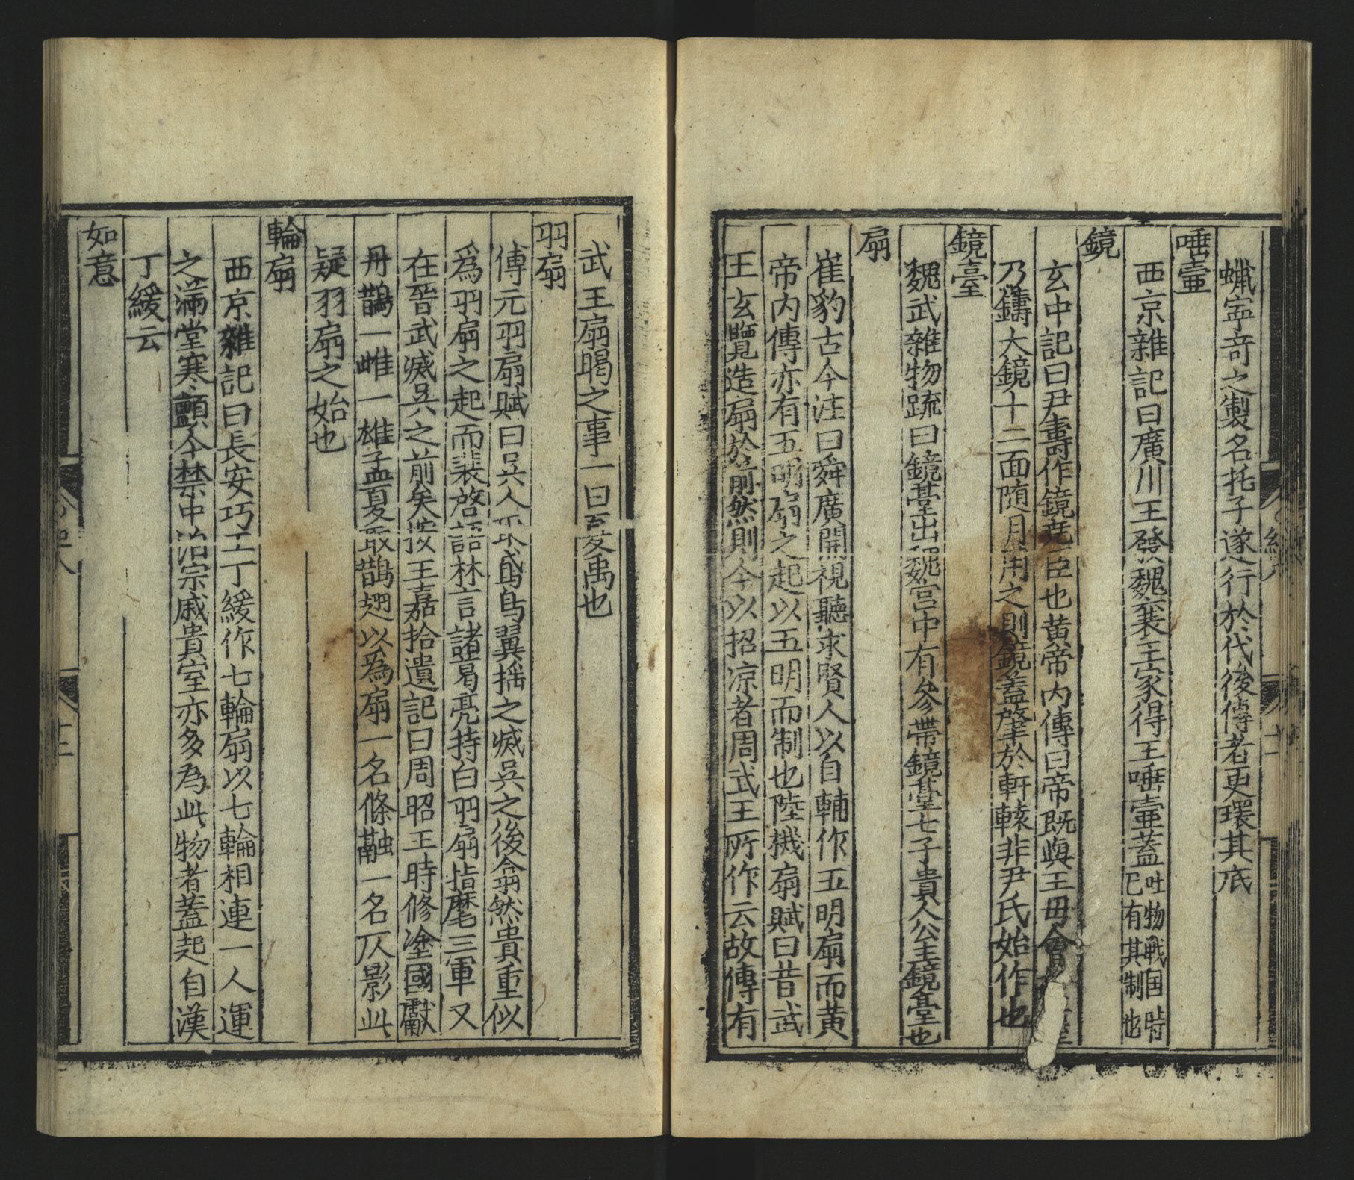 蠟寧奇之製名托子遂行於代後傳者更環其底
唾壷
西京雜記曰廣川王發魏襄王冢得王唾壷蓋吐物戰国時已有其制也
鏡
玄中記曰尹壽作鏡堯臣也黄帝内傳曰帝既與王母會
乃鑄大鏡十二面随月用之則鏡蓋肇於軒轅非尹氏始作也
鏡臺
魏武雜物疏曰鏡臺出魏宫中有參帶鏡臺七子貴人公主鏡臺也
扇
崔豹古今注曰舜廣開視聽求賢人以自輔作五明扇而黄
帝内傳亦有五明扇之起以五明而制也陸機扇賦曰昔武
王玄覽造扇於前然則今以招凉者周武王所作云故傳有
武王扇暍之事一曰夏禹也
羽扇
傅元羽扇賦曰吴人取鳥翼揺之滅吴之後翕然貴重似
為羽扇之起而裴啓語林言諸葛亮持白羽扇指麾三軍又
在晉武滅吴之前矣按王嘉拾遺記曰周昭王時修塗國獻
丹鵲一雌一雄孟夏取鵲翅以為扇一名條融一名仄影此
疑羽扇之始也
輪扇
西京雜記曰長安巧工丁緩作七輪扇以七輪相連一人運
之滿堂寒顫今禁中治宗戚貴室亦多為此物者蓋起自漢
丁緩云
如意